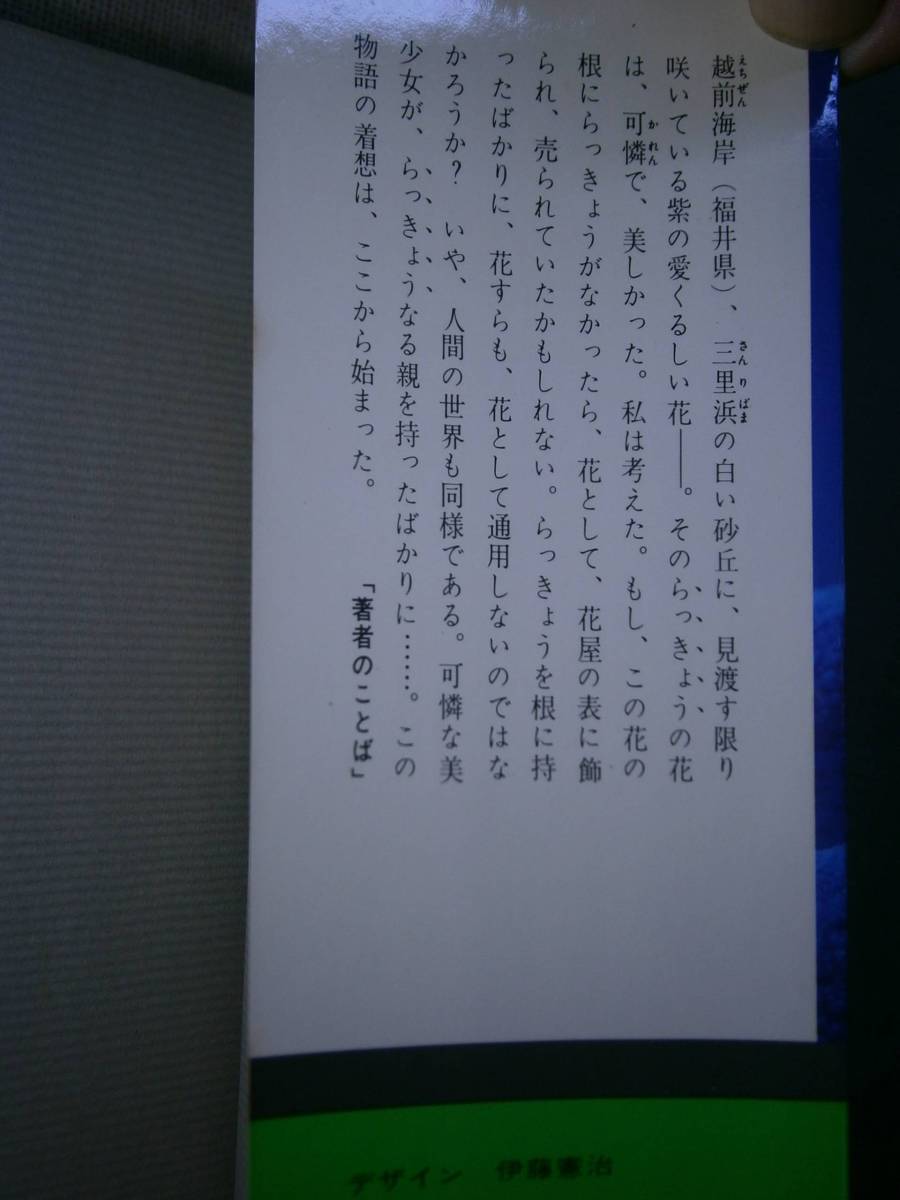 越前海岸（福井県）、三里浜の白い砂丘に、見渡す限り
咲いている紫の愛くるしい花――。そのらっきょうの花
は、可憐で、美しかった。私は考えた。もし、この花の
根にらっきょうがなかったら、花として、花屋の表に飾
られ、売られていたかもしれない。らっきょうを根に持
ったばかりに、花すらも、花として通用しないのではな
かろうか？　いや、人間の世界も同様である。可憐な美
少女が、らっきょうなる親を持ったばかりに……。この
物語の着想は、ここから始まった。
「著者のことば」
デザイン　伊藤憲治